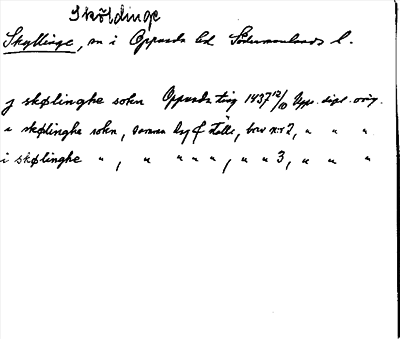 Sköldinge
Skyllinge, sn i Oppunda hd Södermanlands l.
j skølinghe sokn Oppunda ting 1437 12/10 Upps. dipl. orig.
i skølinghe sokn, samma dag f ställe, brev nr 2, " " "
i skølinghe " , " " " " , " " 3, " " "